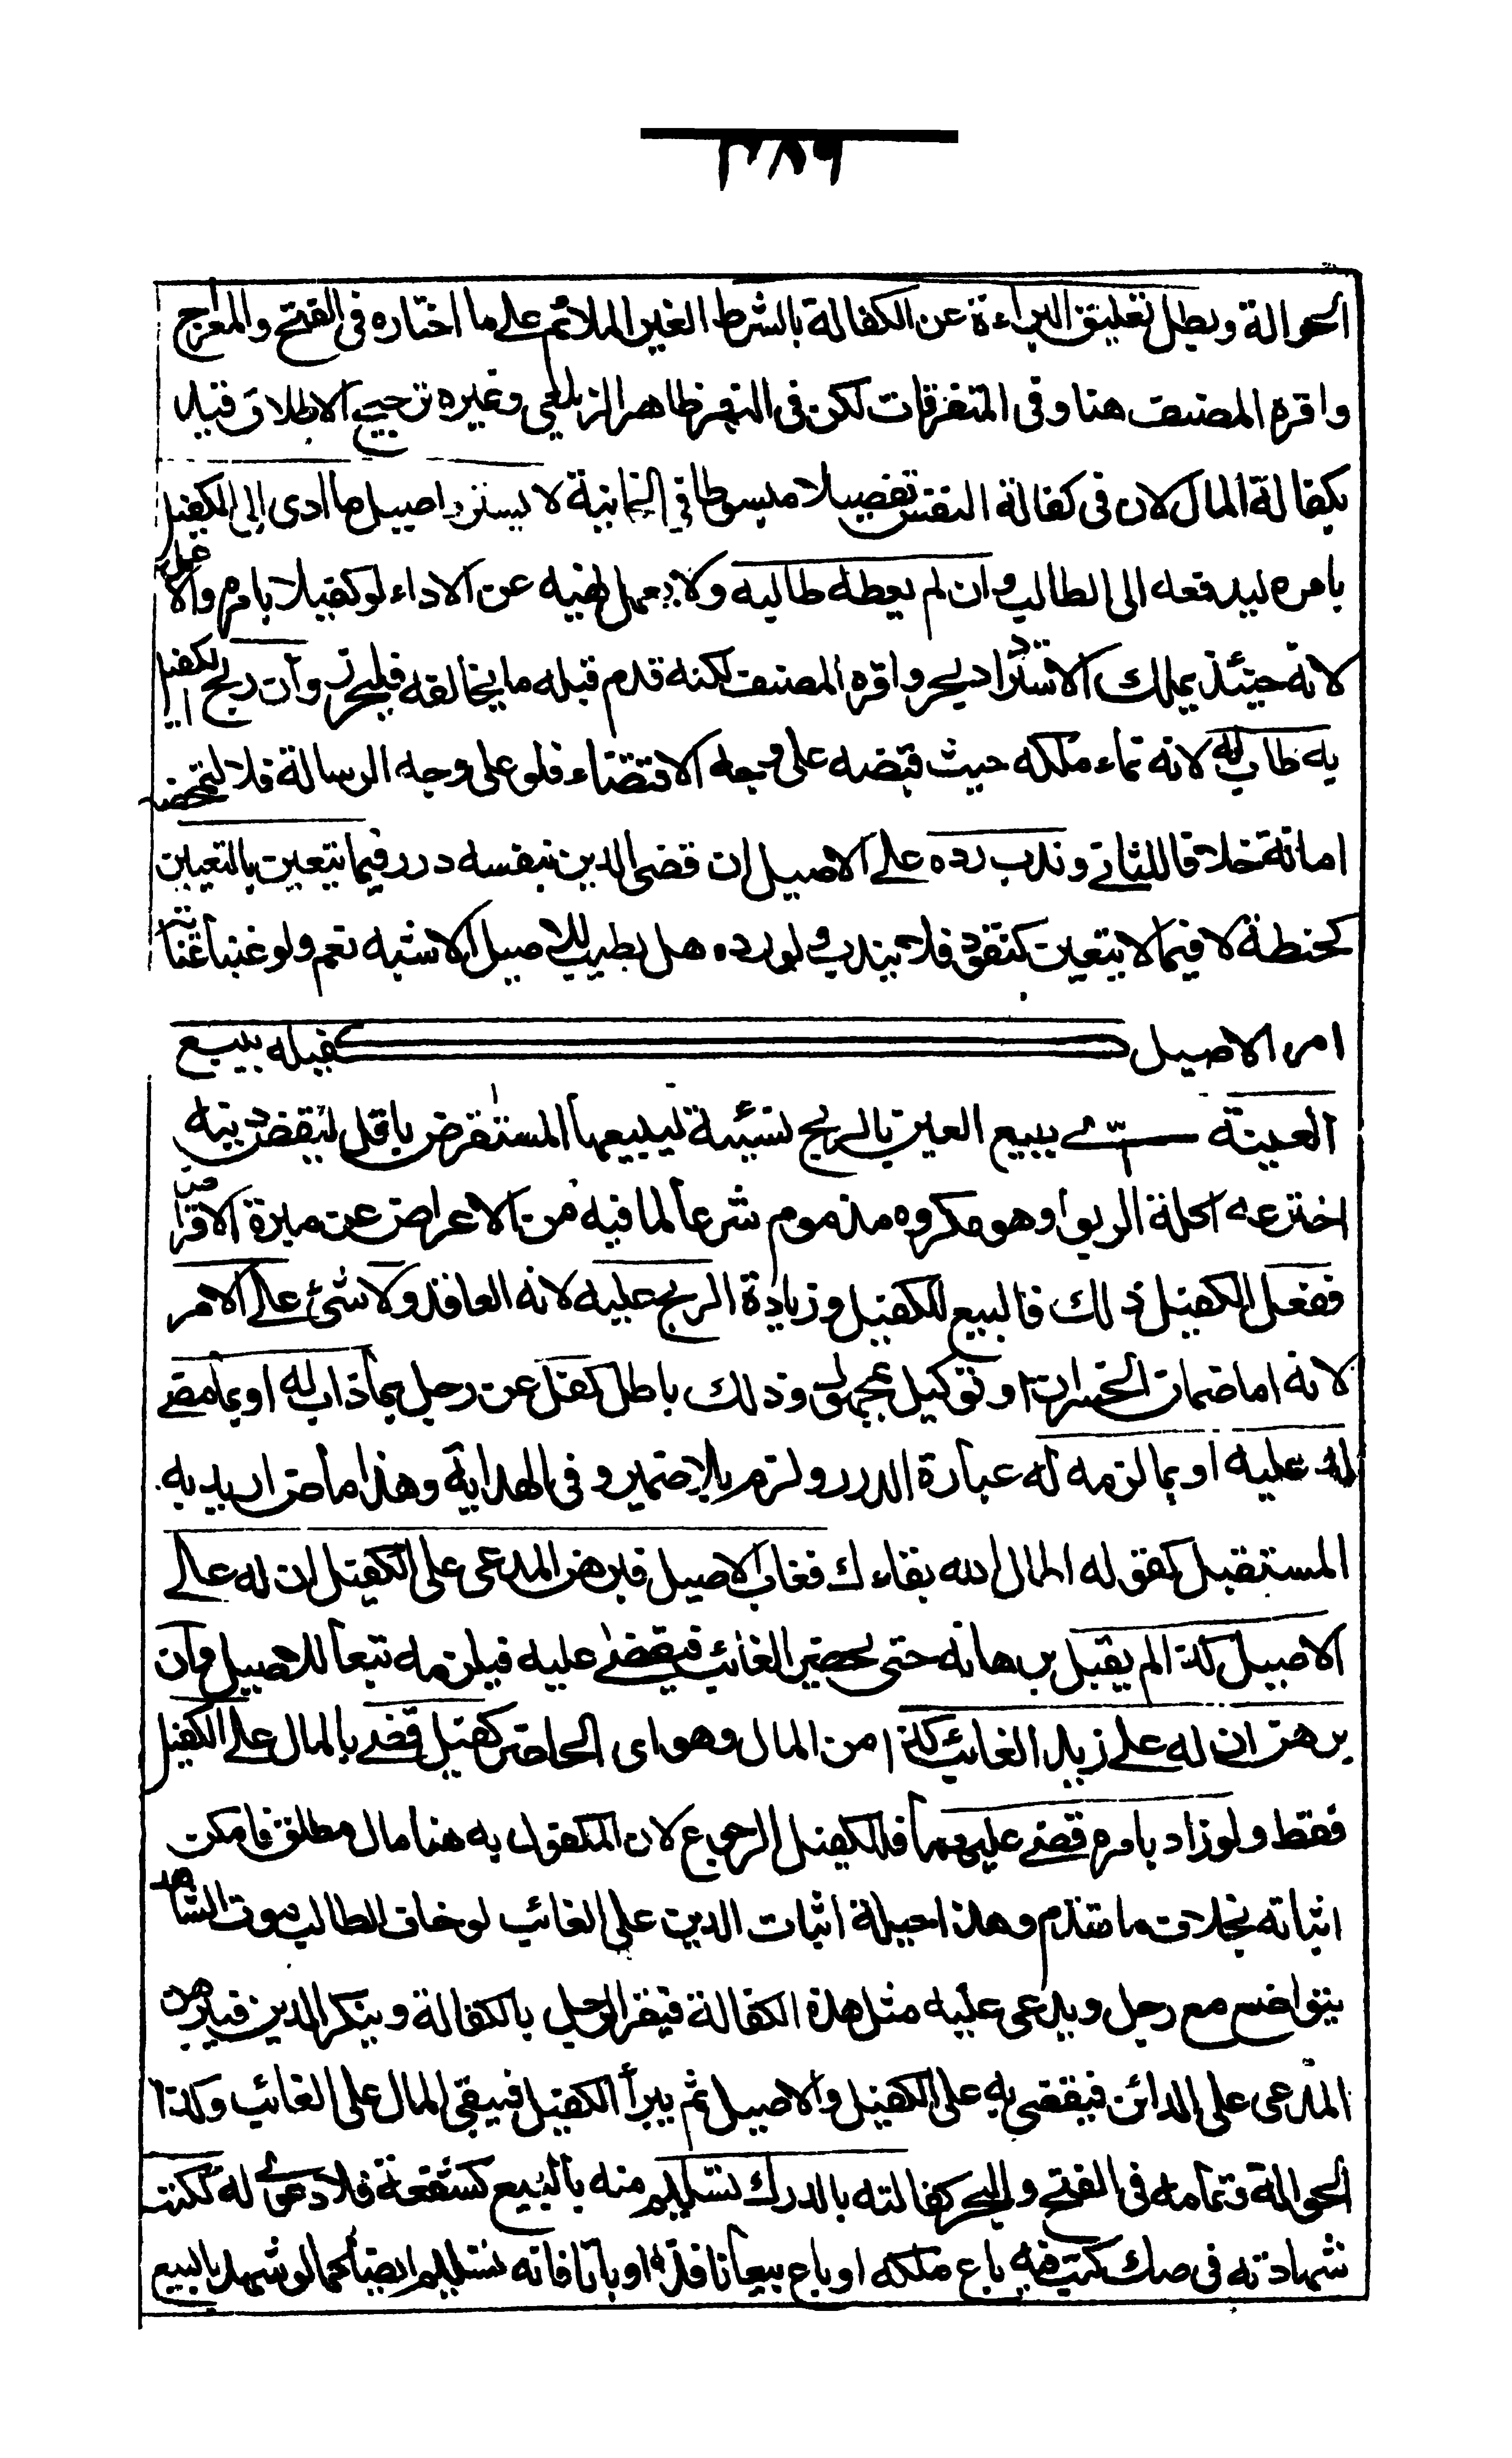 الحوالة وبطل تعليق البراءة عن الكفالة بالشرط الغير الملائم على ما اختاره في الفتح والمعراج
واقره المصنف هنا وفي المتفرقات لكن في النهر ظاهر الزيلعي وغيره ترجيح الاطلاق قيد
بكفالة المال لان في كفالة النفس تفصيلا مبسوطا في الخانية لا يسترد اصيل ما ادى الى الكفيل
بامره ليدفعه الى الطالب وان لم يعطه طالبه ولا يعمل نهيه عن الاداء لو كفيلا بامره والا عمل
لانه حينئذ يملك الاسترداد بحر واقره المصنف لكنه قدم قبله ما يخالفه فليحرر وان ربح الكفيل
به طاب له لانه نماء ملكه حيث قبضه على وجه الاقتضاء فلو على وجه الرسالة فلا لتمحضه
امانة خلافا للثاني وندب رده على الاصيل ان قضى الدين بنفسه درر فيما يتعين بالتعيين
كحنطة لا فيما لا يتعين كنقود فلا يندب ولو رده هل يطيب للاصيل الاشبه نعم ولو غنيا عناية
امر الاصيل كفيله ببيع
العينة اي بيع العين بالربح نسيئة ليبيعها المستقرض باقل ليقضي دينه
اخترعه اكلة الربوا وهو مكروه مذموم شرعا لما فيه من الاعراض عن مبرة الاقراض
ففعل الكفيل ذلك فالبيع للكفيل وزيادة الربح عليه لانه العاقد ولا شئ على الامر
لانه اما ضمان الخسران او توكيل بمجهول وذلك باطل كفل عن رجل بما ذاب له او بما قضى
له عليه او بما لزمه له عبارة الدرر ولزم بلا ضمير وفي الهداية وهذا ماض اريد به
المستقبل كقوله اطال الله بقاءك فغاب الاصيل فبرهن المدعى على الكفيل ان له على
الاصيل كذا لم يقبل برهانه حتى يحضر الغائب فيقضى عليه فيلزمه تبعا للاصيل وان
برهن ان له على زيد الغائب كذا من المال وهو اى الحاضر كفيل قضى بالمال على الكفيل
فقط ولو زاد بامره قضى عليهما فللكفيل الرجوع لان المكفول به هنا مال مطلق فامكن
اثباته بخلاف ما تقدم وهذا حيلة اثبات الدين على الغائب لو خاف الطالب موت الشاهد
يتواضع مع رجل ويدعى عليه مثل هذه الكفالة فيقر الرجل بالكفالة وينكر الدين فيبرهن
المدعى على الدائن فيقضى به على الكفيل والاصيل ثم يبرأ الكفيل فيبقى المال على الغائب وكذا
الحوالة وتمامه في الفتح والبحر كفالته بالدرك تسليم منه بالبيع كشفعة فلا دعوى له ككتب
شهادته في صك كتب فيه باع ملكه او باع بيعا نافذا او باتا فانه تسليم ايضا كما لو شهد بالبيع